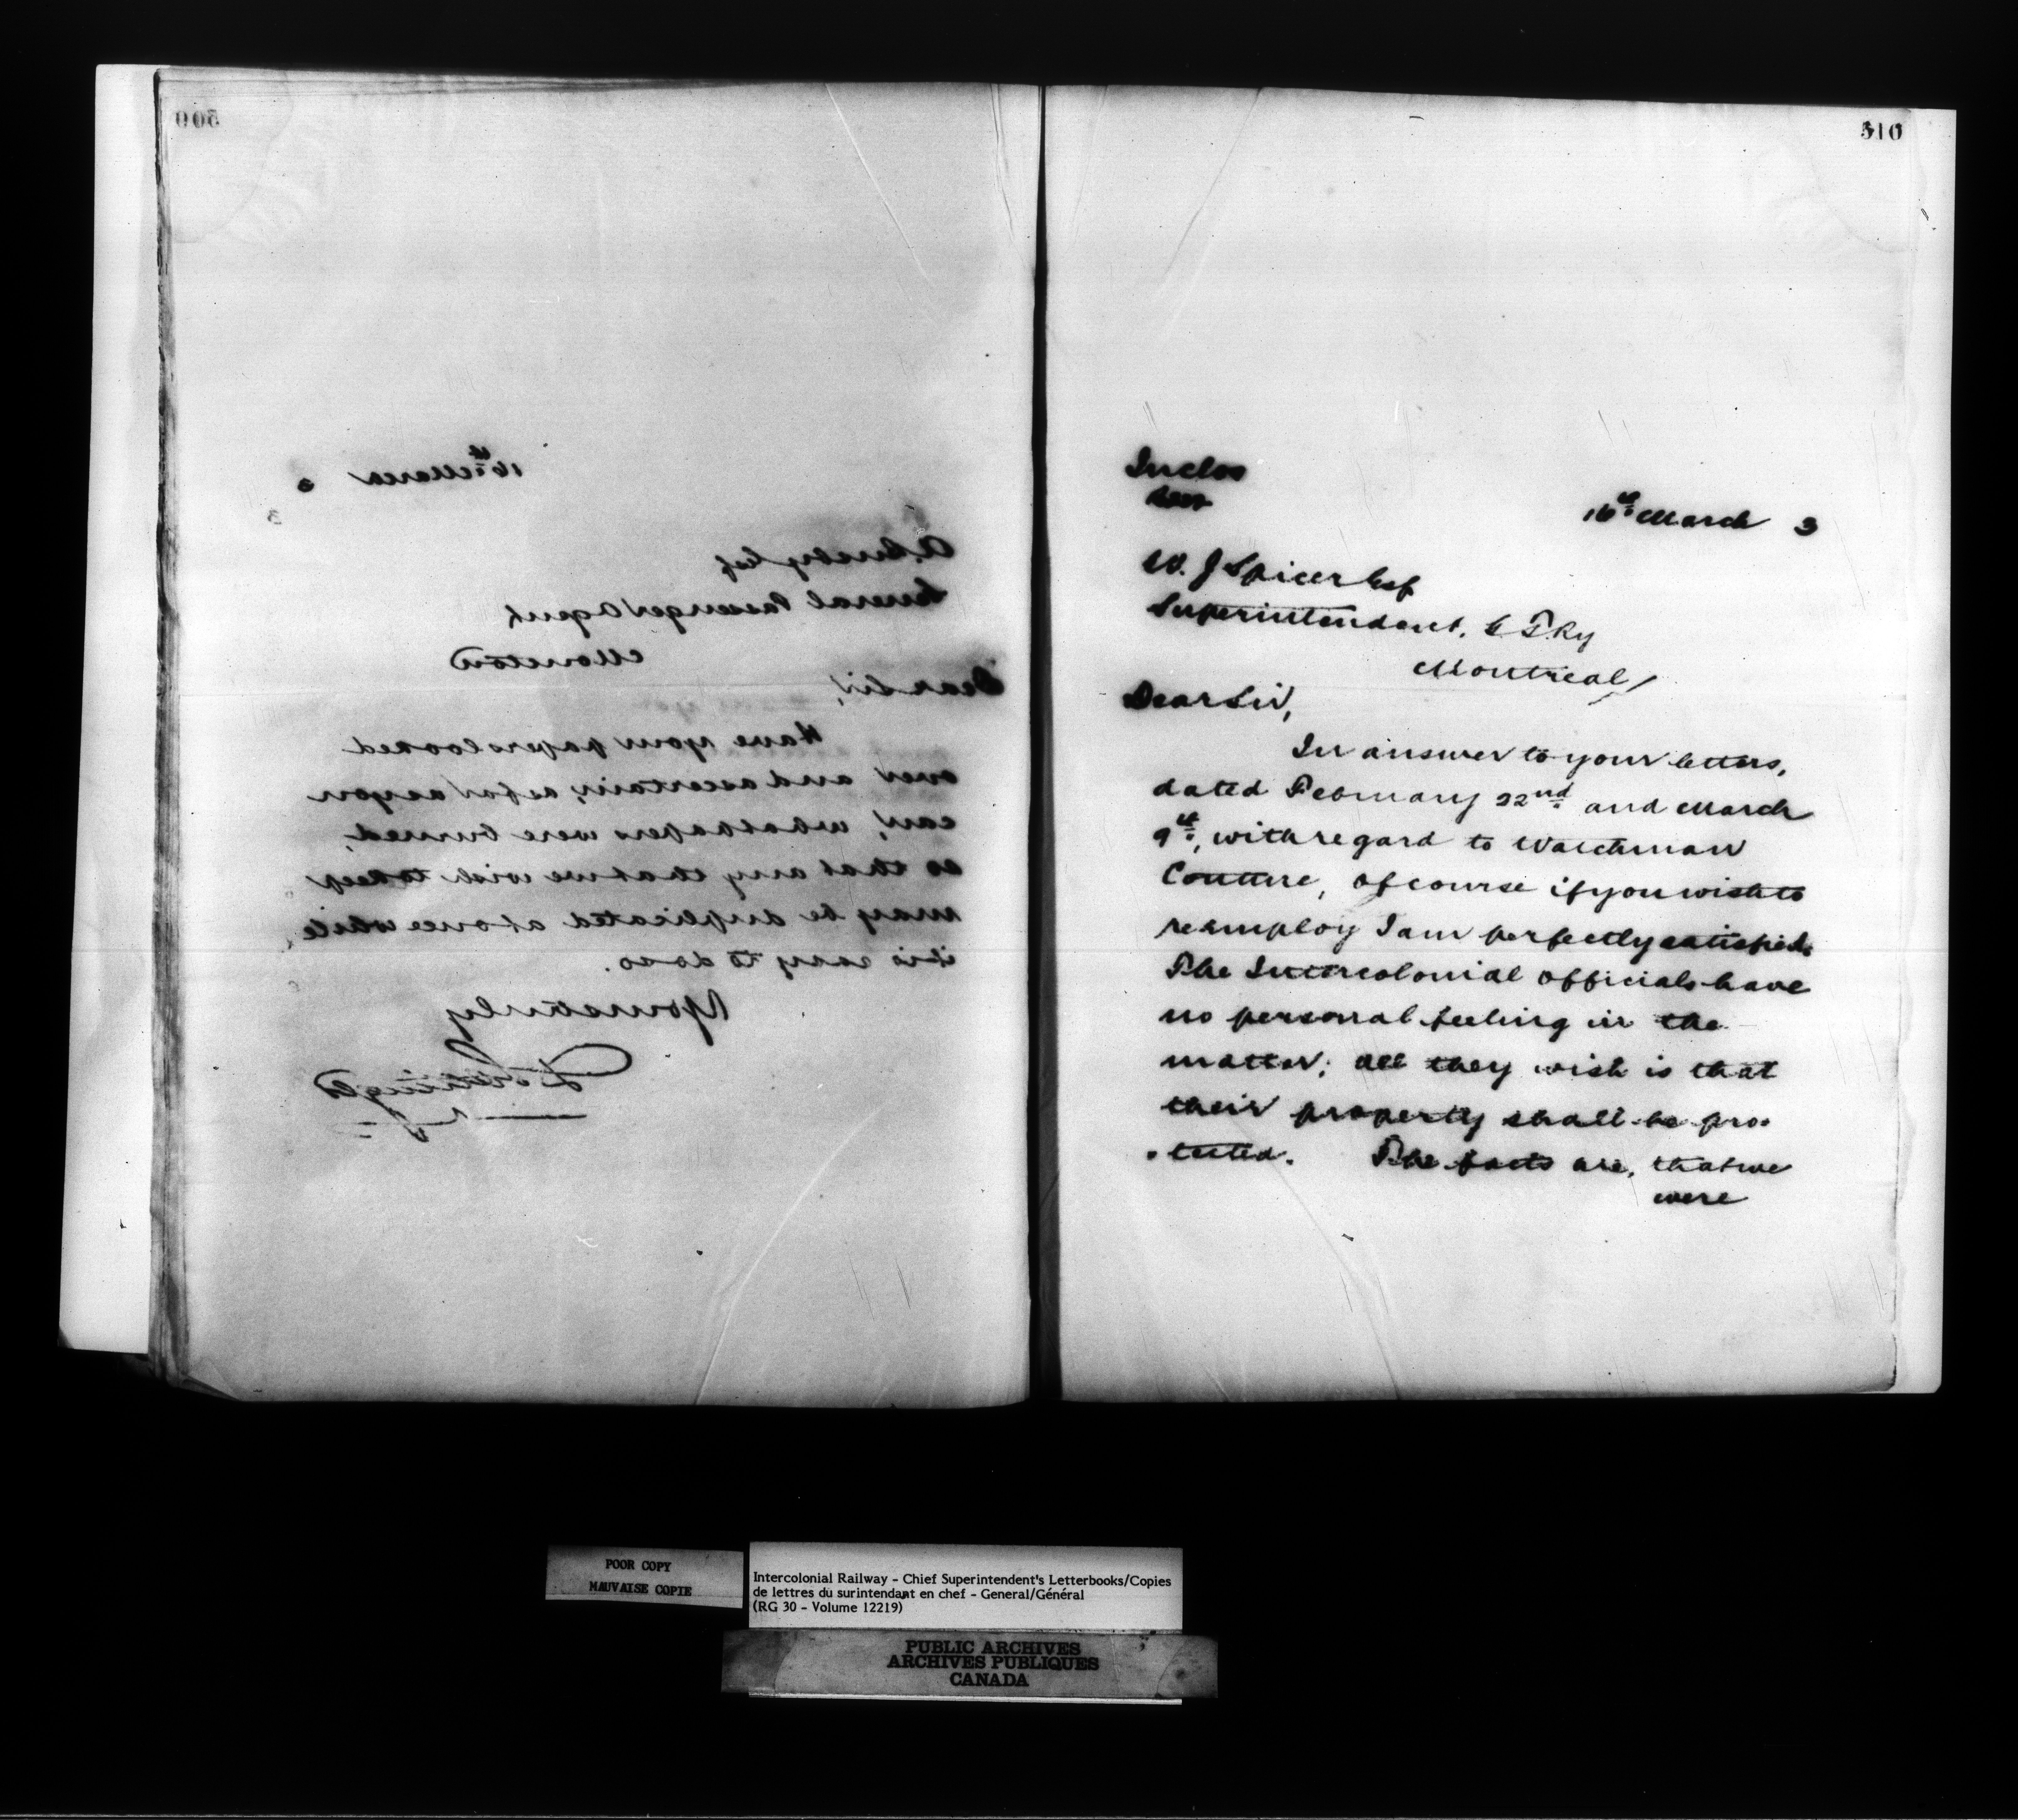 509
16th March 3
A. Busby Esq
General Passenger Agent
Moncton
Dear Sir,
Have your papers looked
over and ascertain, as far as you
can, what papers were burned,
so that any that we wish to keep
may be duplicated at once while
it is easy to do so.
Yours truly
D. Pottinger
510
Inclos
16th March 3
W. J Spicer Esq
Superintendent, G. T. Ry
Montreal
Dear Sir,
In answer to your letters,
dated February 22nd and March
9th, with regard to Watchman
Couture, of course if you wish to
reemploy I am perfectly satisfied.
The Intercolonial officials have
no personal feeling in the
matter; all they wish is that
their property shall be pro-
-tected. The facts are, that we
were
POOR COPY
MAUVAISE COPIE
Intercolonial Railway - Chief Superintendent's Letterbooks/Copies
de lettres du surintendant en chef - General/Général
(RG 30 - Volume 12219)
PUBLIC ARCHIVES
ARCHIVES PUBLIQUES
CANADA